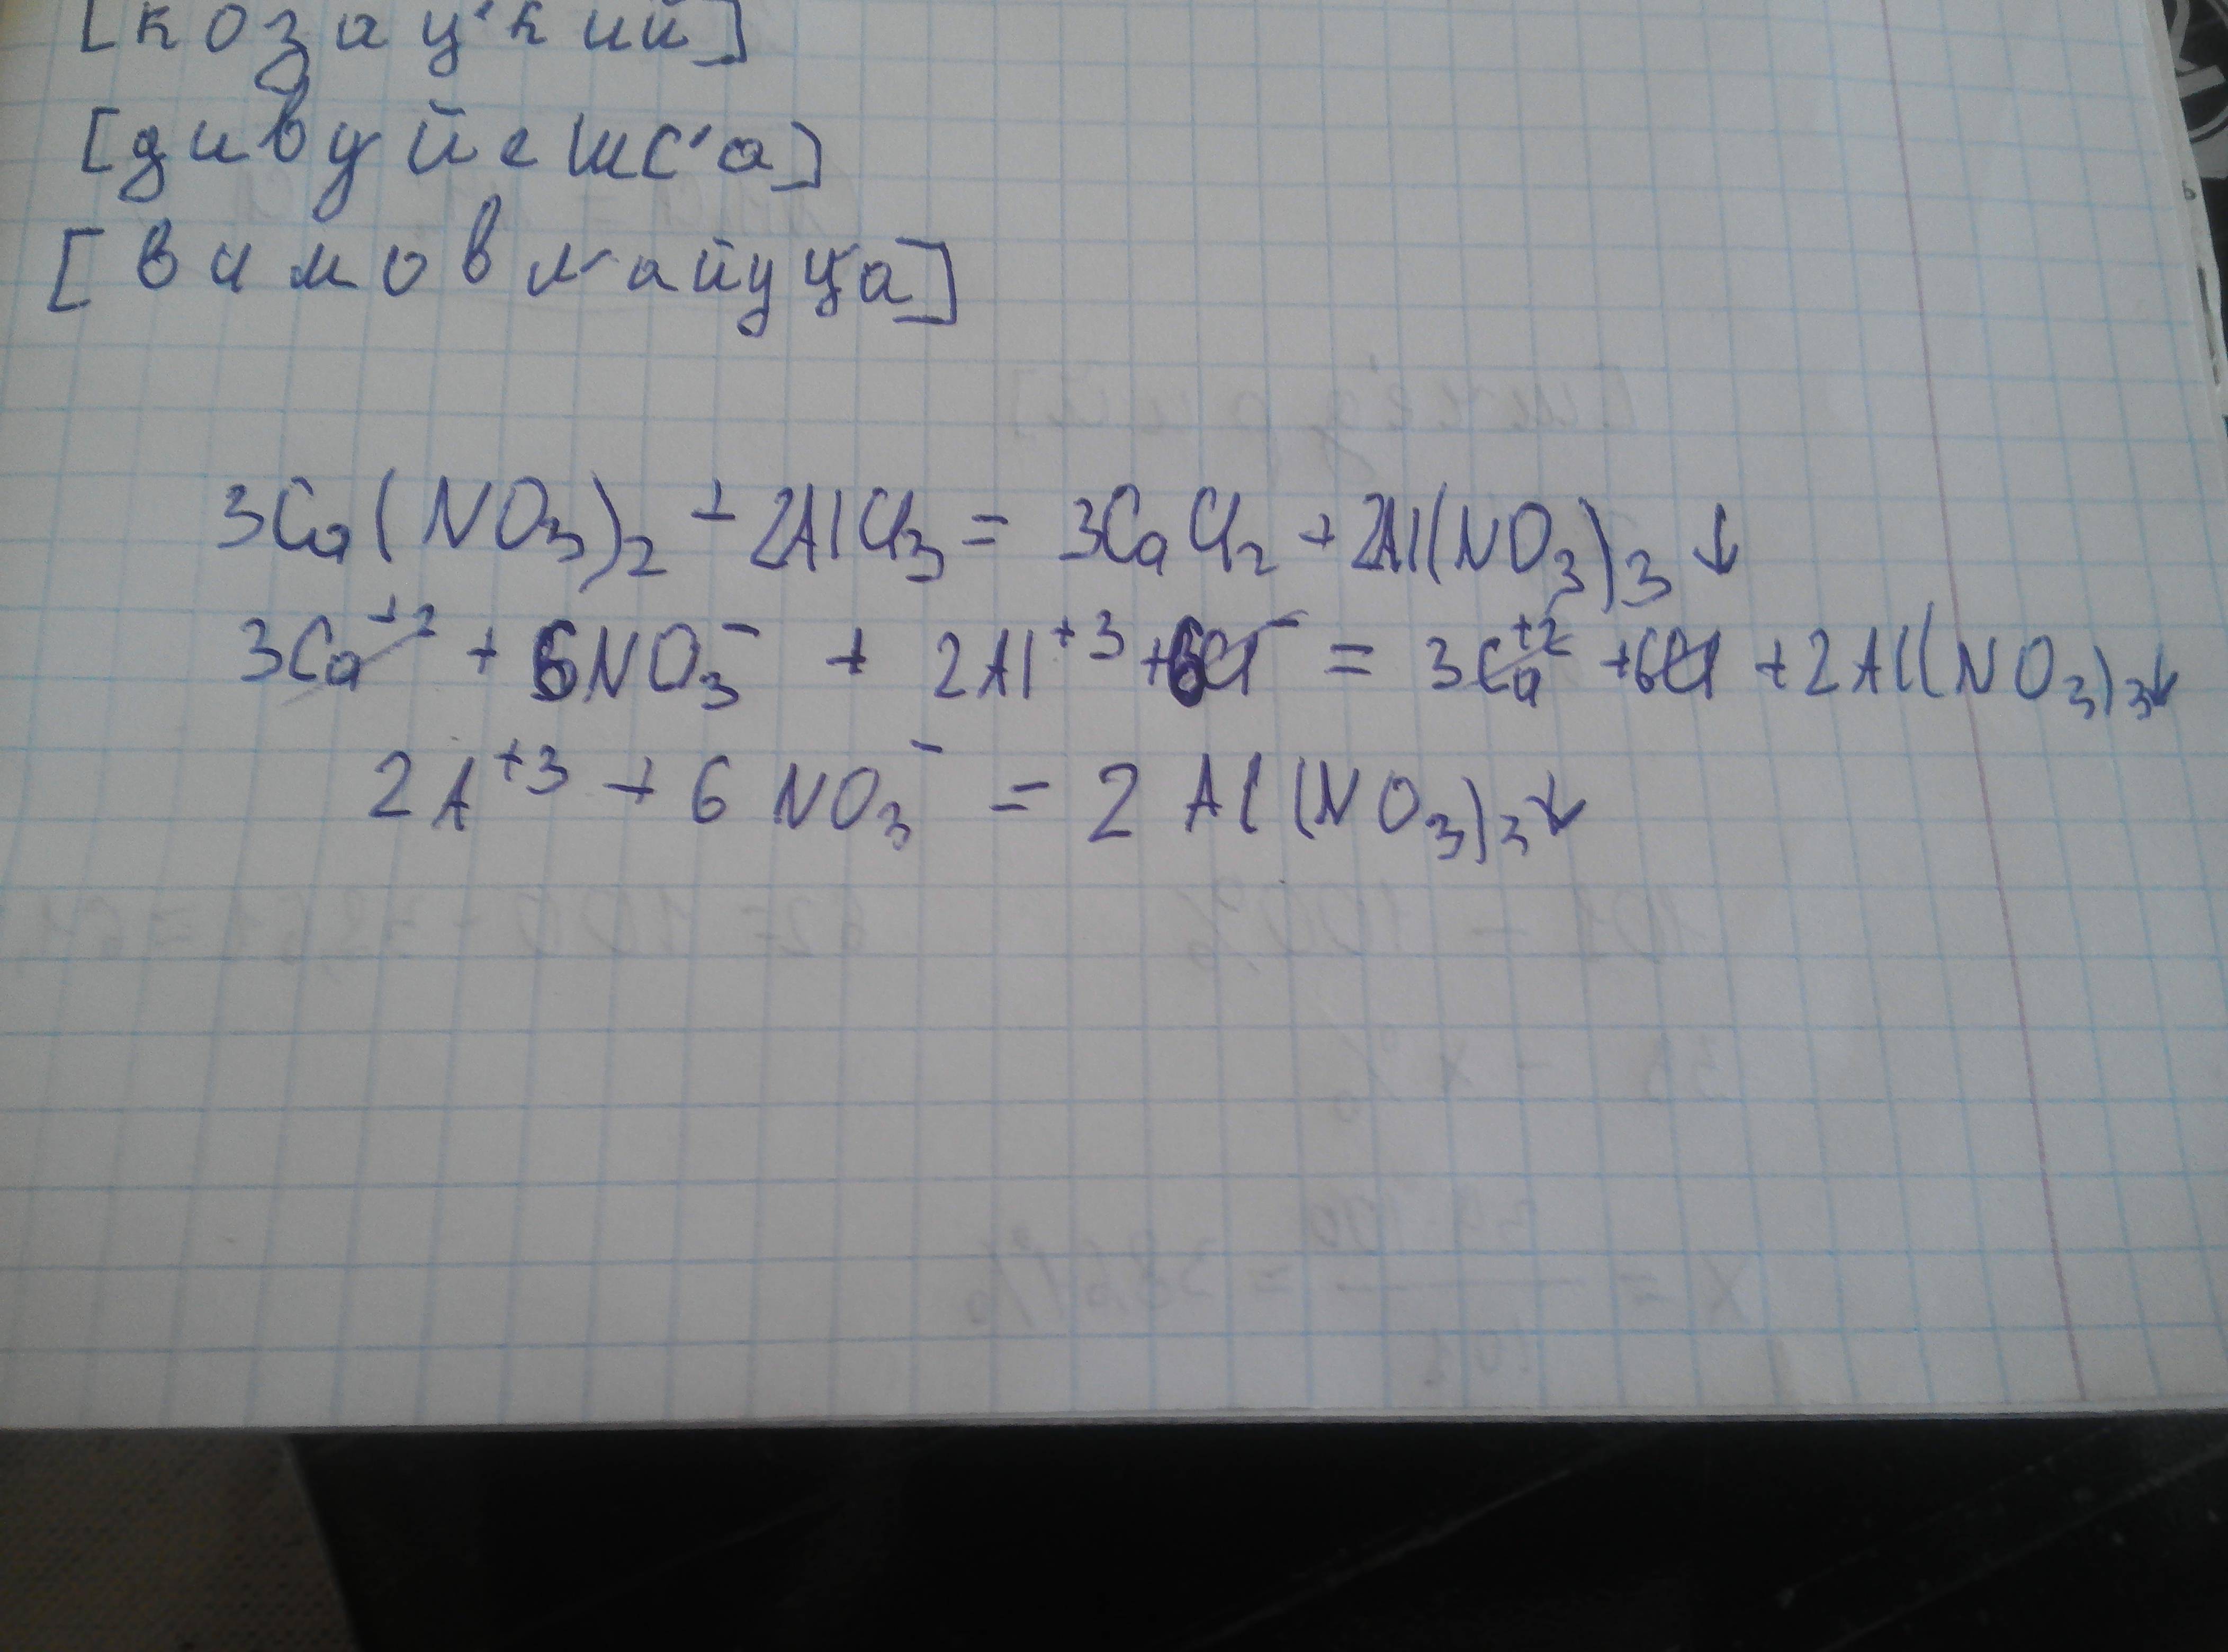 [козац'кий]
[дивуйешс'а]
[вимовл'айуц'а]
3Ca(NO₃)₂ + 2AlCl₃ = 3CaCl₂ + 2Al(NO₃)₃ ↓
3Ca⁺² + 6NO₃⁻ + 2Al⁺³ + 6Cl⁻ = 3Ca⁺² + 6Cl + 2Al(NO₃)₃↓
2A⁺³ + 6NO₃⁻ = 2Al(NO₃)₃↓